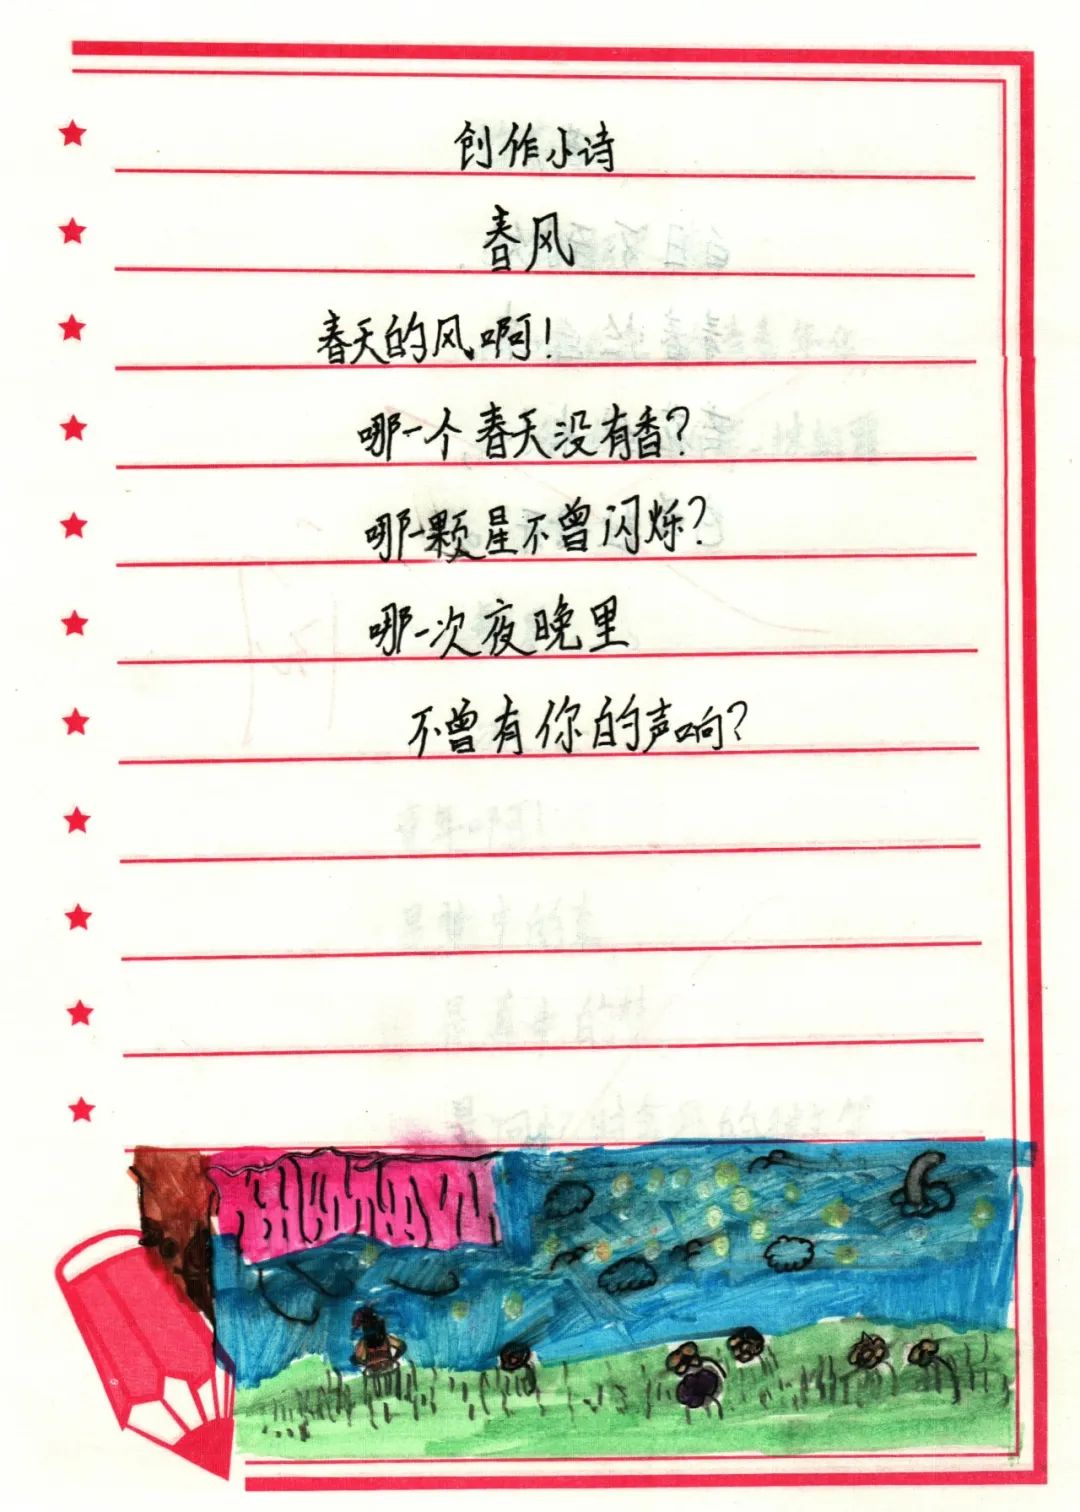 创作小诗
春风
春天的风啊！
哪一个春天没有香？
哪一颗星不曾闪烁？
哪一次夜晚里
不曾有你的声响？